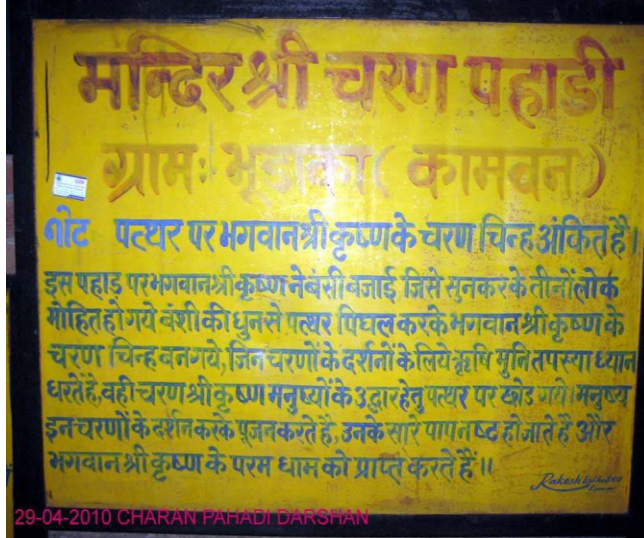 मन्दिर श्री चरण पहाडी
ग्रामः भूडाका ( कामवन )
नोट पत्थर पर भगवान श्री कृष्ण के चरण चिन्ह अंकित है।
इस पहाड़ पर भगवान श्री कृष्ण ने बंसी बजाई जिसे सुनकर के तीनों लोक
मोहित हो गये बंशी की धुन से पत्थर पिघल करके भगवान श्री कृष्ण के
चरण चिन्ह बन गये, जिन चरणों के दर्शनों के लिये ऋषि मुनि तपस्या ध्यान
धरते है, वही चरण श्री कृष्ण मनुष्यों के उद्धार हेतु पत्थर पर छोड गये। मनुष्य
इन चरणों के दर्शन करके पूजन करते है, उनके सारे पाप नष्ट हो जाते है और
भगवान श्री कृष्ण के परम धाम को प्राप्त करते हैं॥
Rakesh
29-04-2010 CHARAN PAHADI DARSHAN